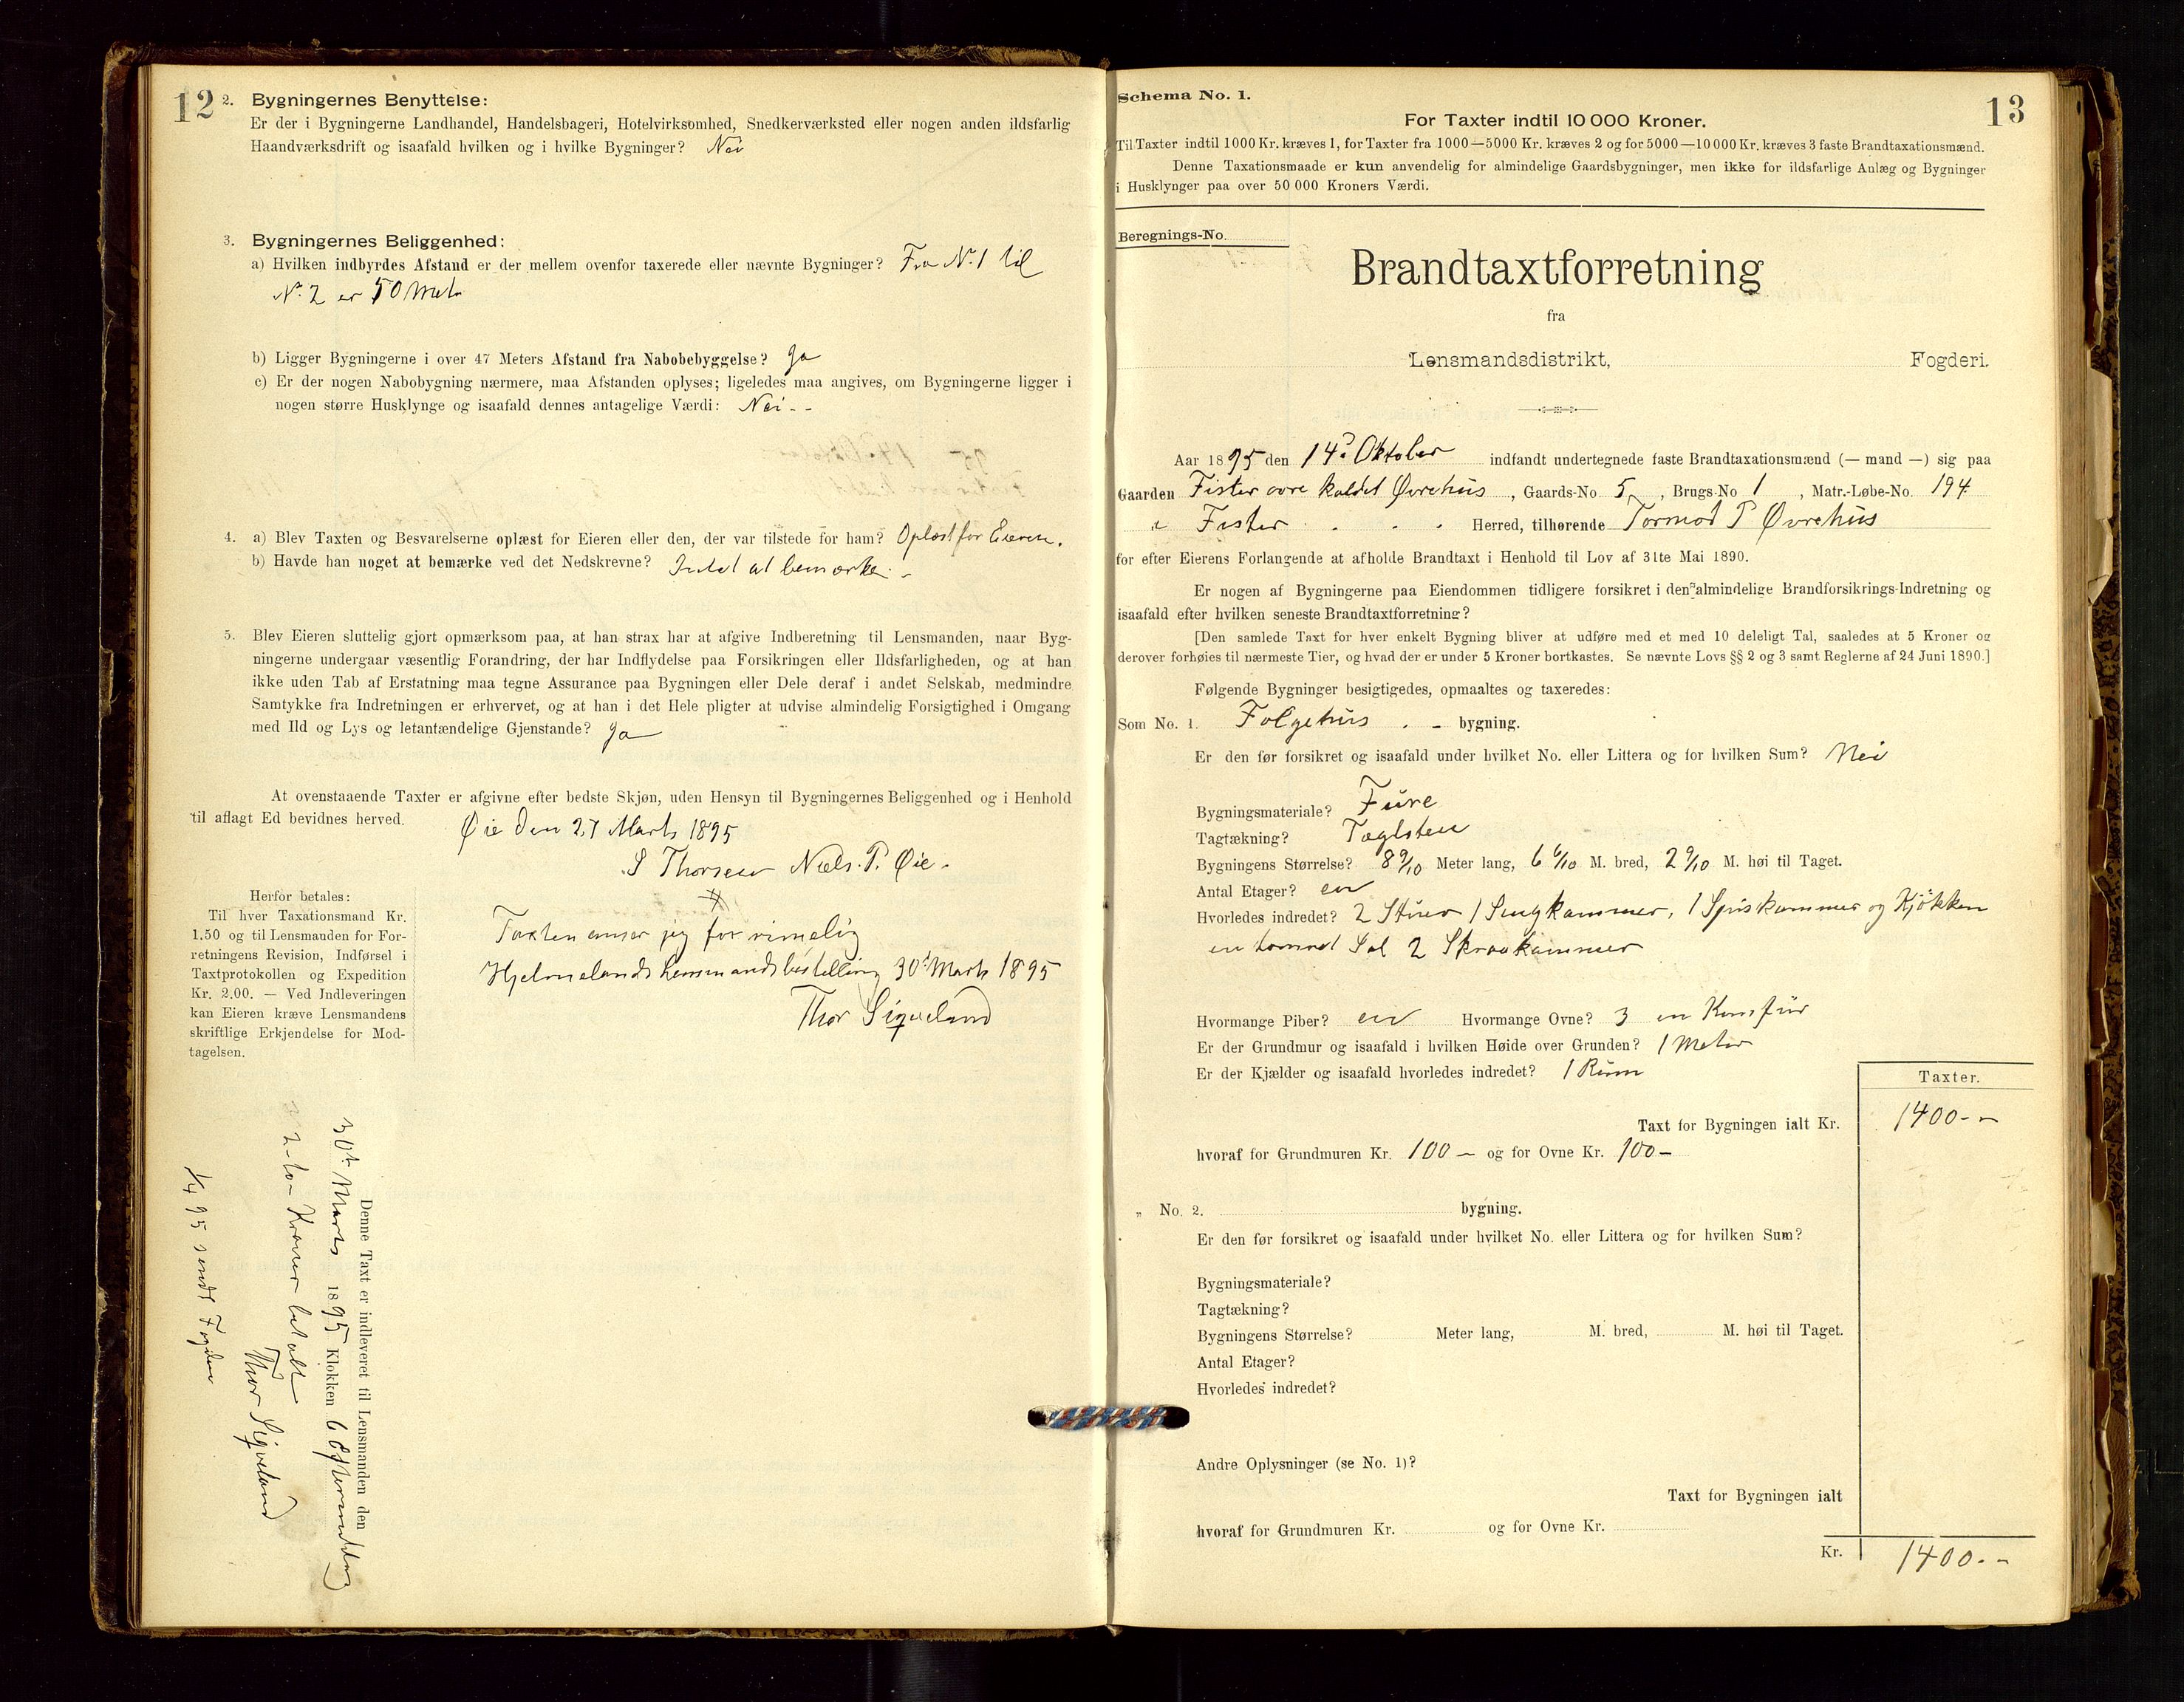 12
2. Bygningernes Benyttelse:
Er der i Bygningerne Landhandel, Handelsbageri, Hotelvirksomhed, Snedkerværksted eller nogen anden ildsfarlig
Haandværksdrift og isaafald hvilken og i hvilke Bygninger? Nei
3. Bygningernes Beliggenhed:
a) Hvilken indbyrdes Afstand er der mellem ovenfor taxerede eller nævnte Bygninger? Fra No. 1 til
No. 2 er 50 Meter
b) Ligger Bygningerne i over 47 Meters Afstand fra Nabobebyggelse? Ja
c) Er der nogen Nabobygning nærmere, maa Afstanden oplyses; ligeledes maa angives, om Bygningerne ligger i
nogen større Husklynge og isaafald dennes antagelige Værdi: Nei - -
4. a) Blev Taxten og Besvarelserne oplæst for Eieren eller den, der var tilstede for ham? Oplæst for Eieren.
b) Havde han noget at bemærke ved det Nedskrevne? Intet at bemærke. -
5. Blev Eieren sluttelig gjort opmærksom paa, at han strax har at afgive Indberetning til Lensmanden, naar Byg-
ningerne undergaar væsentlig Forandring, der har Indflydelse paa Forsikringen eller Ildsfarligheden, og at han
ikke uden Tab af Erstatning maa tegne Assurance paa Bygningen eller Dele deraf i andet Selskab, medmindre
Samtykke fra Indretningen er erhvervet, og at han i det Hele pligter at udvise almindelig Forsigtighed i Omgang
med Ild og Lys og letantændelige Gjenstande? Ja
At ovenstaaende Taxter er afgivne efter bedste Skjøn, uden Hensyn til Bygningernes Beliggenhed og i Henhold
til aflagt Ed bevidnes herved.
Øie den 27 Marts 1895
S Thorsen Niels. P. Øie -
Herfor betales:
Til hver Taxationsmand Kr.
1.50 og til Lensmanden for For-
retningens Revision, Indførsel i
Taxtprotokollen og Expedition
Kr. 2.00. — Ved Indleveringen
kan Eieren kræve Lensmandens
skriftlige Erkjendelse for Mod-
tagelsen.
Taxten anser jeg for rimelig
Hjelmelands Lensmandsbestilling 30. Marts 1895
Thor Sigveland
Denne Taxt er indleveret til Lensmanden den
30te Marts 1895 Klokken 6 Eftermiddag
2 - to - Kroner betalt
Thor Sigveland
1/4 95 sendt Fogden
13
Schema No. 1.
For Taxter indtil 10 000 Kroner.
Til Taxter indtil 1000 Kr. kræves 1, for Taxter fra 1000—5000 Kr. kræves 2 og for 5000—10 000 Kr. kræves 3 faste Brandtaxationsmænd.
Denne Taxationsmaade er kun anvendelig for almindelige Gaardsbygninger, men ikke for ildsfarlige Anlæg og Bygninger
i Husklynger paa over 50 000 Kroners Værdi.
Beregnings-No.
Brandtaxtforretning
fra
Lensmandsdistrikt, Fogderi.
Aar 1895 den 14de Oktober indfandt undertegnede faste Brandtaxationsmænd (— mand —) sig paa
Gaarden Fister øvre kaldet Øvrehus, Gaards-No. 5, Brugs-No 1, Matr.-Løbe-No. 194
i Fister Herred, tilhørende Tormod P Øvrehus
for efter Eierens Forlangende at afholde Brandtaxt i Henhold til Lov af 31te Mai 1890.
Er nogen af Bygningerne paa Eiendommen tidligere forsikret i den almindelige Brandforsikrings-Indretning og
isaafald efter hvilken seneste Brandtaxtforretning?
[Den samlede Taxt for hver enkelt Bygning bliver at udføre med et med 10 deleligt Tal, saaledes at 5 Kroner og
derover forhøies til nærmeste Tier, og hvad der er under 5 Kroner bortkastes. Se nævnte Lovs §§ 2 og 3 samt Reglerne af 24 Juni 1890.]
Følgende Bygninger besigtigedes, opmaaltes og taxeredes:
Som No. 1. Folgehus - bygning.
Er den før forsikret og isaafald under hvilket No. eller Littera og for hvilken Sum? Nei
Bygningsmateriale? Fure
Tagtækning? Taglsten
Bygningens Størrelse? 8 9/10 Meter lang, 6 6/10 M. bred, 2 9/10 M. høi til Taget.
Antal Etager? en
Hvorledes indredet? 2 Stuer 1 Sengkammer, 1 Spiskammer og Kjøkken
en tømret Sal 2 Skraakammer
Hvormange Piber? en Hvormange Ovne? 3 en Komfur
Er der Grundmur og isaafald i hvilken Høide over Grunden? 1 Meter
Er der Kjælder og isaafald hvorledes indredet? 1 Rum
Taxter.
Taxt for Bygningen ialt Kr. 1400 - -
hvoraf for Grundmuren Kr. 100 - og for Ovne Kr. 100 -
„ No. 2. bygning.
Er den før forsikret og isaafald under hvilket No. eller Littera og for hvilken Sum?
Bygningsmateriale?
Tagtækning?
Bygningens Størrelse? Meter lang, M. bred, M. høi til Taget.
Antal Etager?
Hvorledes indredet?
Andre Oplysninger (se No. 1)?
Taxt for Bygningen ialt
hvoraf for Grundmuren Kr. og for Ovne Kr.
Kr. 1400 - -